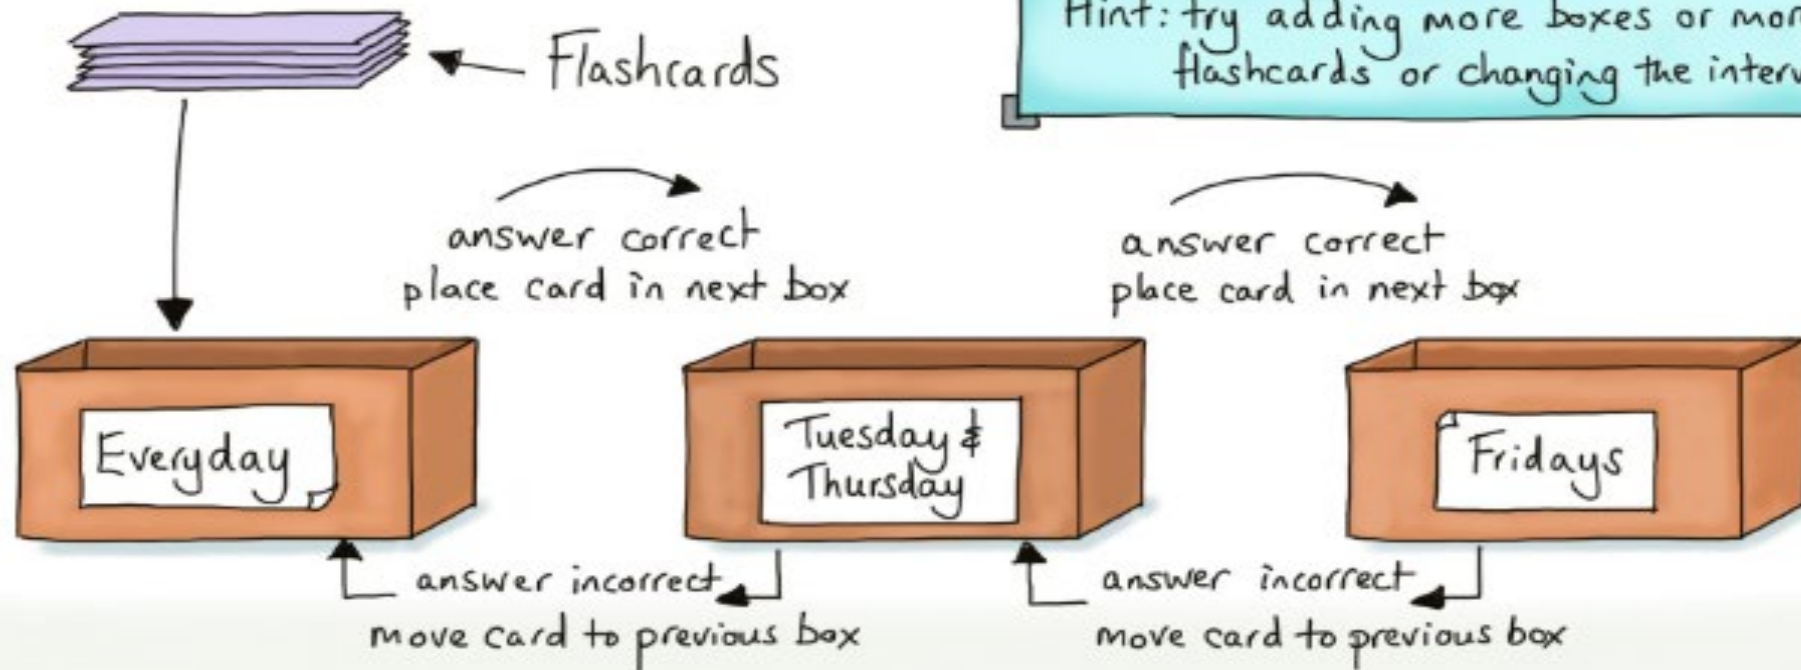 Hint: try adding more boxes or
flashcards or changing the
Flashcards
answer correct
place card in next box
answer correct
place card in next box
Everyday
Tuesday &
Thursday
Fridays
answer incorrect
move card to previous box
answer incorrect
move card to previous box